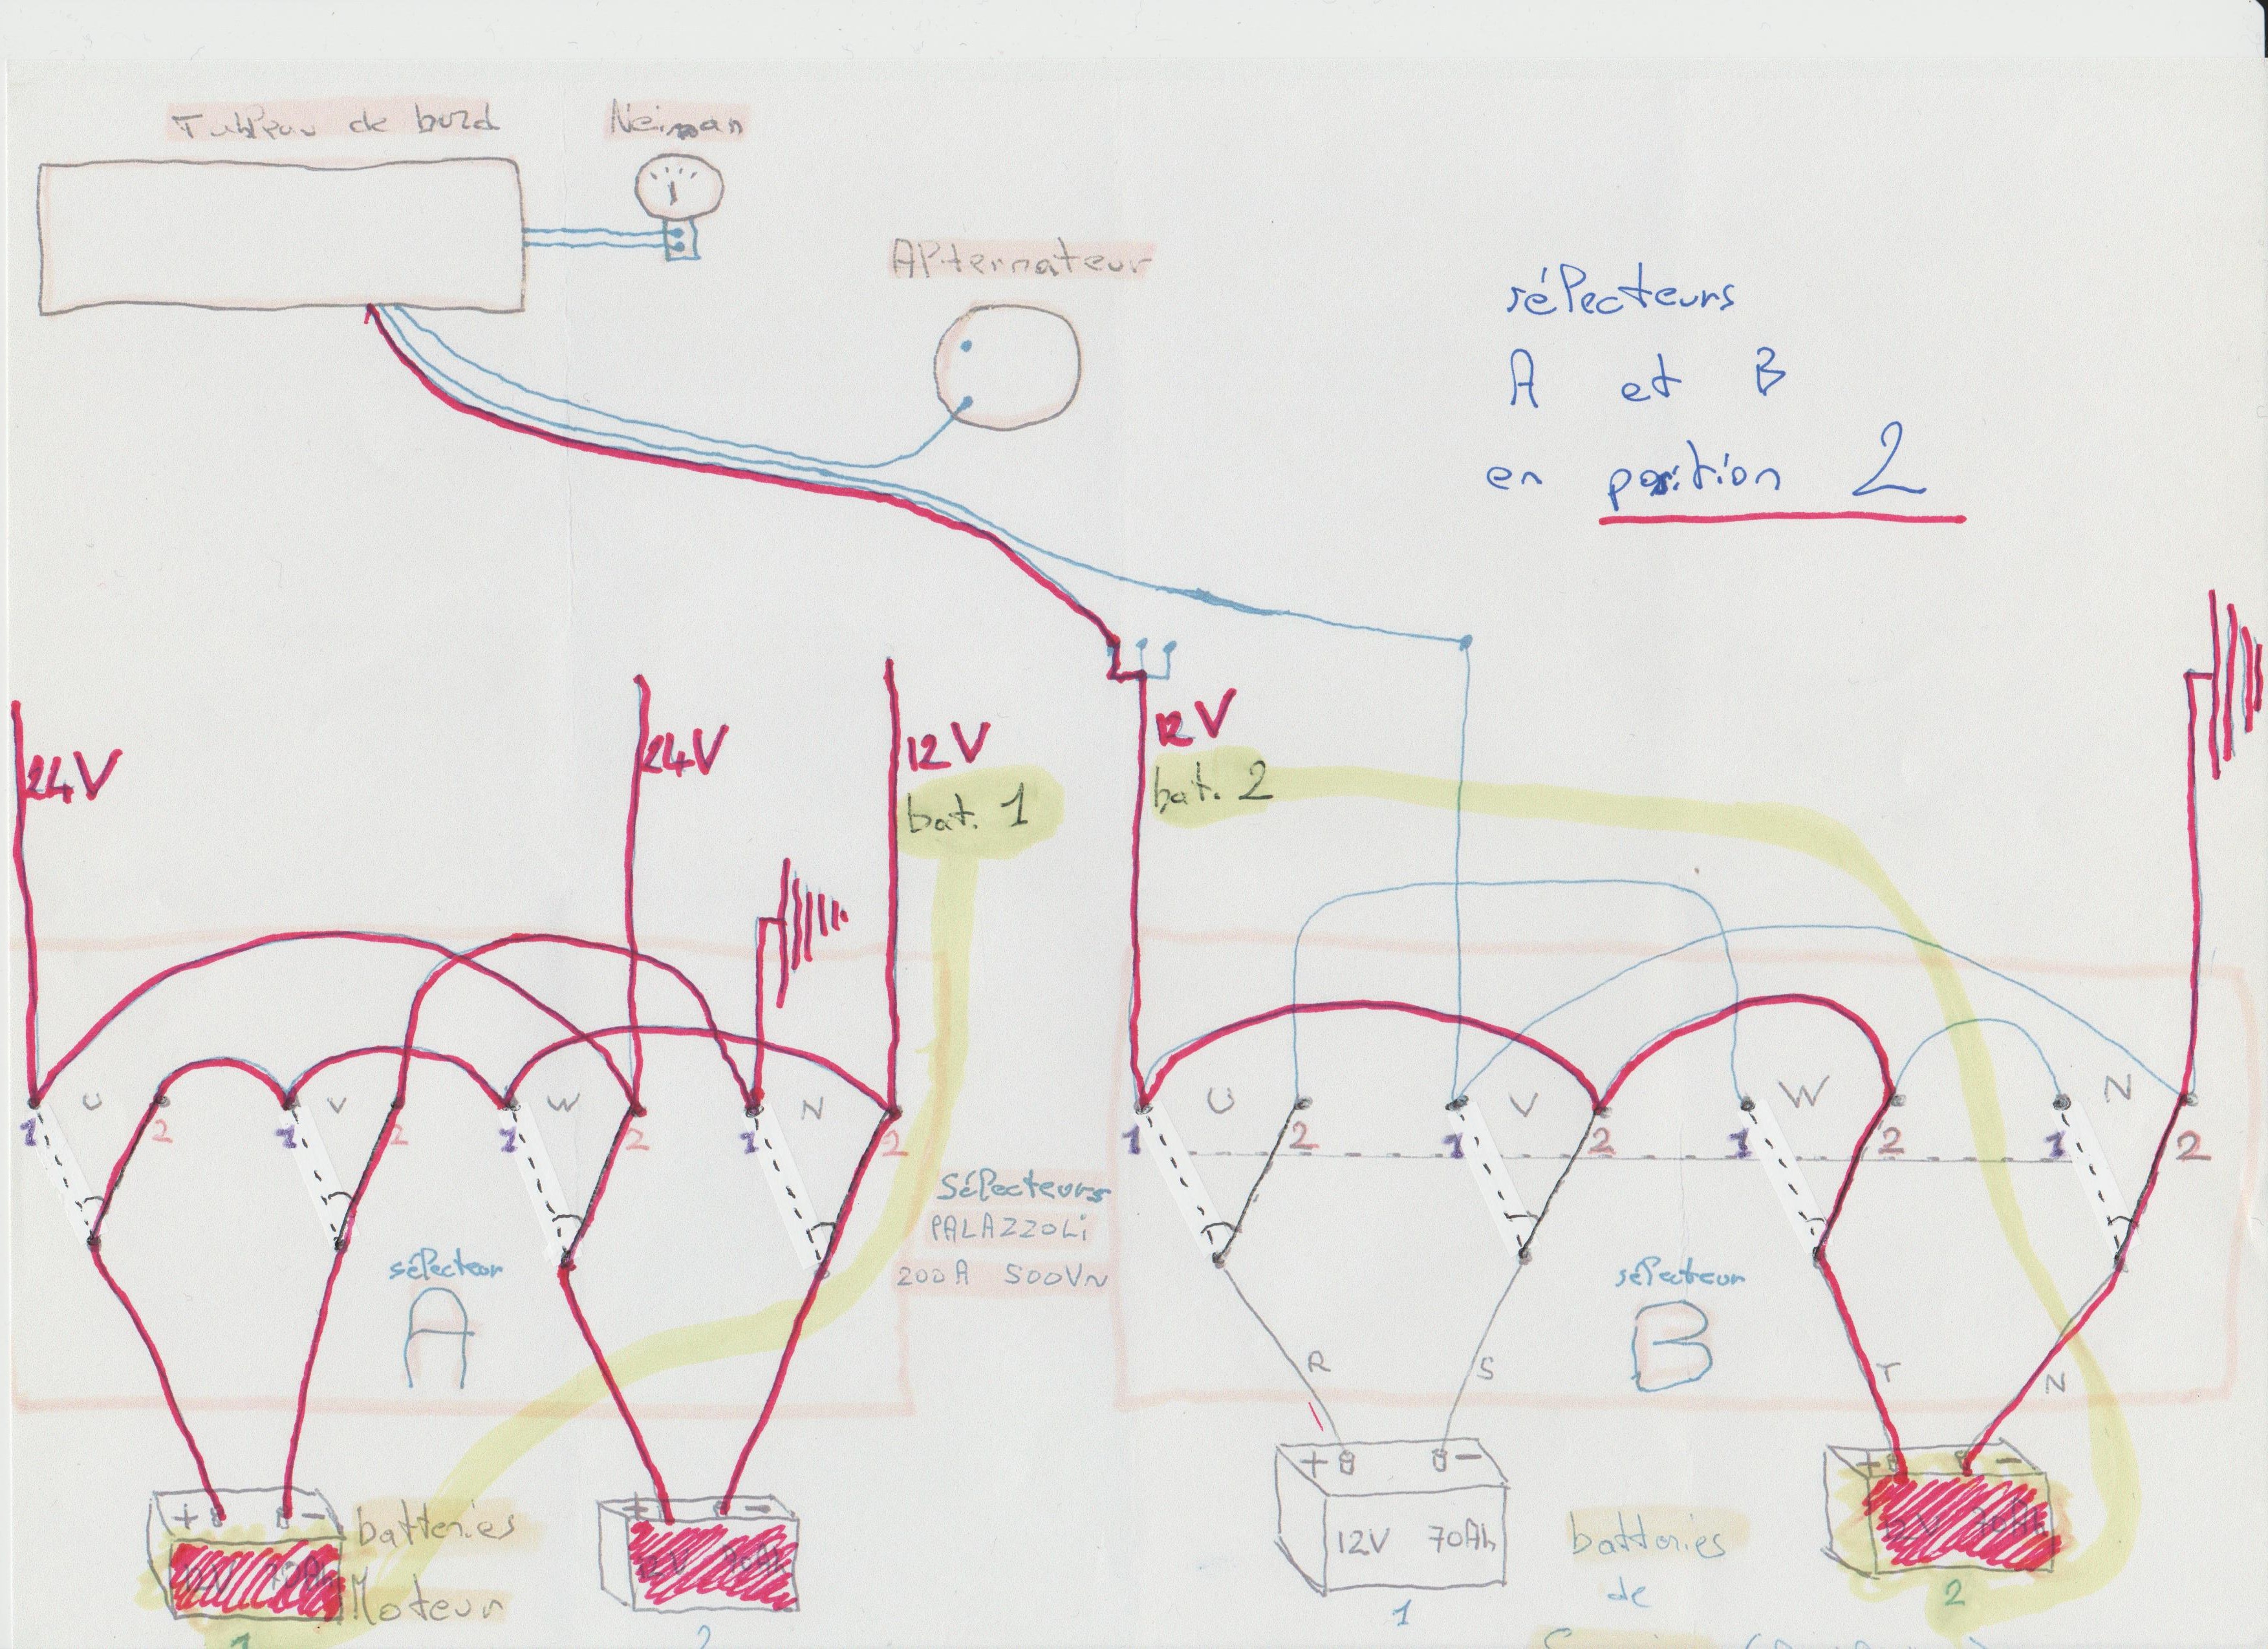 Tableau de bord
Neiman
Alternateur
sélecteurs
A et B
en position 2
24V
24V
12V
bat. 1
12V
bat. 2
U V W N
1 2 1 2 1 2 1 2
U V W N
1 2 1 2 1 2 1 2
Sélecteurs
PALAZZOLi
200A 500V
sélecteur
A
sélecteur
B
R S T N
+ -
+ -
+ -
+ -
batteries
Moteur
12V 70Ah
12V 70Ah
12V 70Ah
12V 70Ah
batteries
de
1
2
1
2